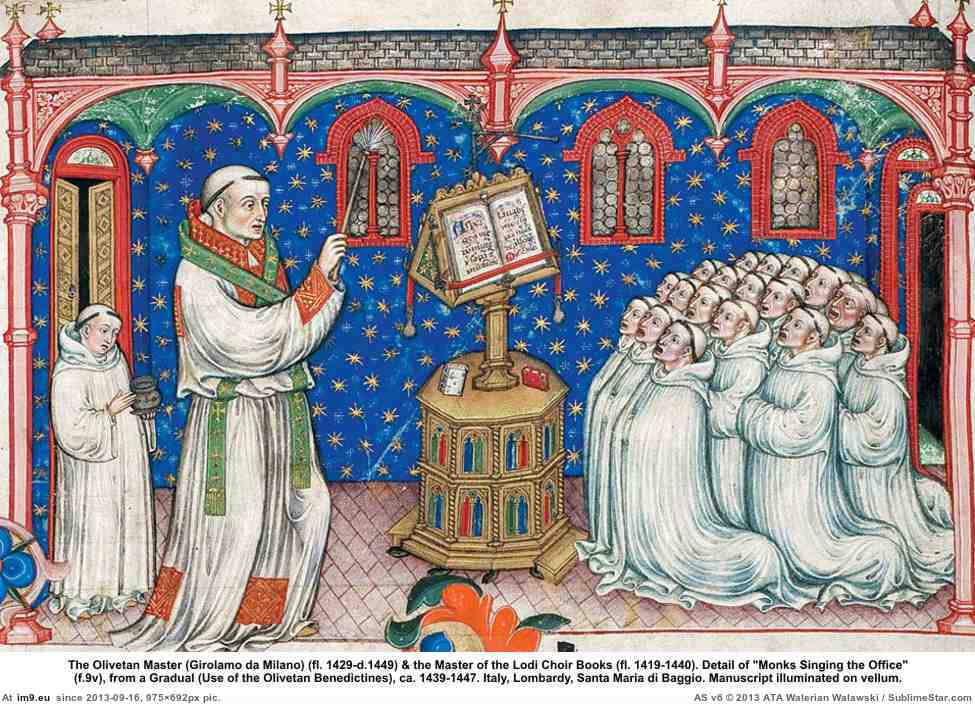 The Olivetan Master (Girolamo da Milano) (fl. 1429-d.1449) & the Master of the Lodi Choir Books (fl. 1419-1440). Detail of "Monks Singing the Office"
(f.9v), from a Gradual (Use of the Olivetan Benedictines), ca. 1439-1447. Italy, Lombardy, Santa Maria di Baggio. Manuscript illuminated on vellum.
At im9.eu since 2013-09-16, 975×692px pic.
AS v6 © 2013 ATA Walerian Walawski / SublimeStar.com